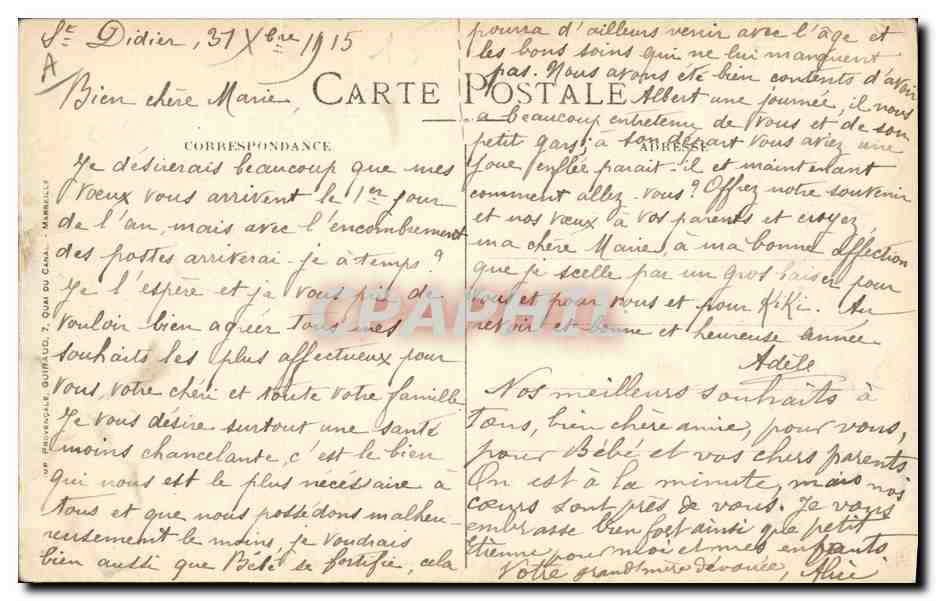 St Didier, 31 Xbre 1915
A
Bien chère Marie,
CARTE POSTALE
CORRESPONDANCE
Je désirerais beaucoup que mes
vœux vous arrivent le 1er jour
de l'an, mais avec l'encombrement
des postes arriverai-je à temps?
Je l'espère et je vous prie de
vouloir bien agréer tous mes
souhaits les plus affectueux pour
vous, votre chéri et toute votre famille
Je vous désire surtout une santé
moins chancelante, c'est le bien
qui nous est le plus nécessaire à
tous et que nous possédons malheu-
reusement le moins, je voudrais
bien aussi que Bébé se fortifie, cela
pourra d'ailleurs venir avec l'âge et
les bons soins qui ne lui manquent
pas. Nous avons été bien contents d'avoir
Albert une journée, il nous
a beaucoup entretenu de vous et de son
petit gars; à son départ vous aviez une
ADRESSE
joue enflée parait-il et maintenant
comment allez-vous? Offrez notre souvenir
et nos vœux à vos parents et croyez,
ma chère Marie, à ma bonne affection
que je scelle par un gros baiser pour
vous et pour vous et pour KiKi. Au
revoir et bonne et heureuse année
Adèle
Nos meilleurs souhaits à
tous, bien chère amie, pour vous,
pour Bébé et vos chers parents
On est à la minute, mais nos
cœurs sont près de vous. Je vous
embrasse bien fort ainsi que petit
Etienne pour moi et mes enfants
Votre grand'mère dévouée, Alice
IMP PROVENÇALE, GUIRAUD, 7, QUAI DU CANAL - MARSEILLE
CPAPHIL